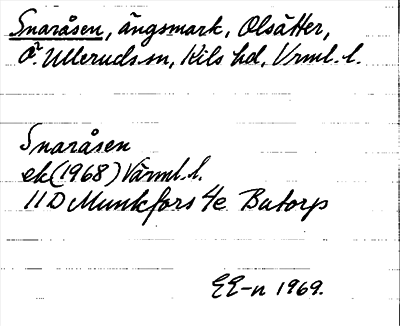 Snaråsen, ängsmark, Olsätter,
Ö. Ulleruds sn, Kils hd, Vrml. l.
Snaråsen
ek (1968) Värml. l.
11D Munkfors 4e Butorp
EE-n 1969.